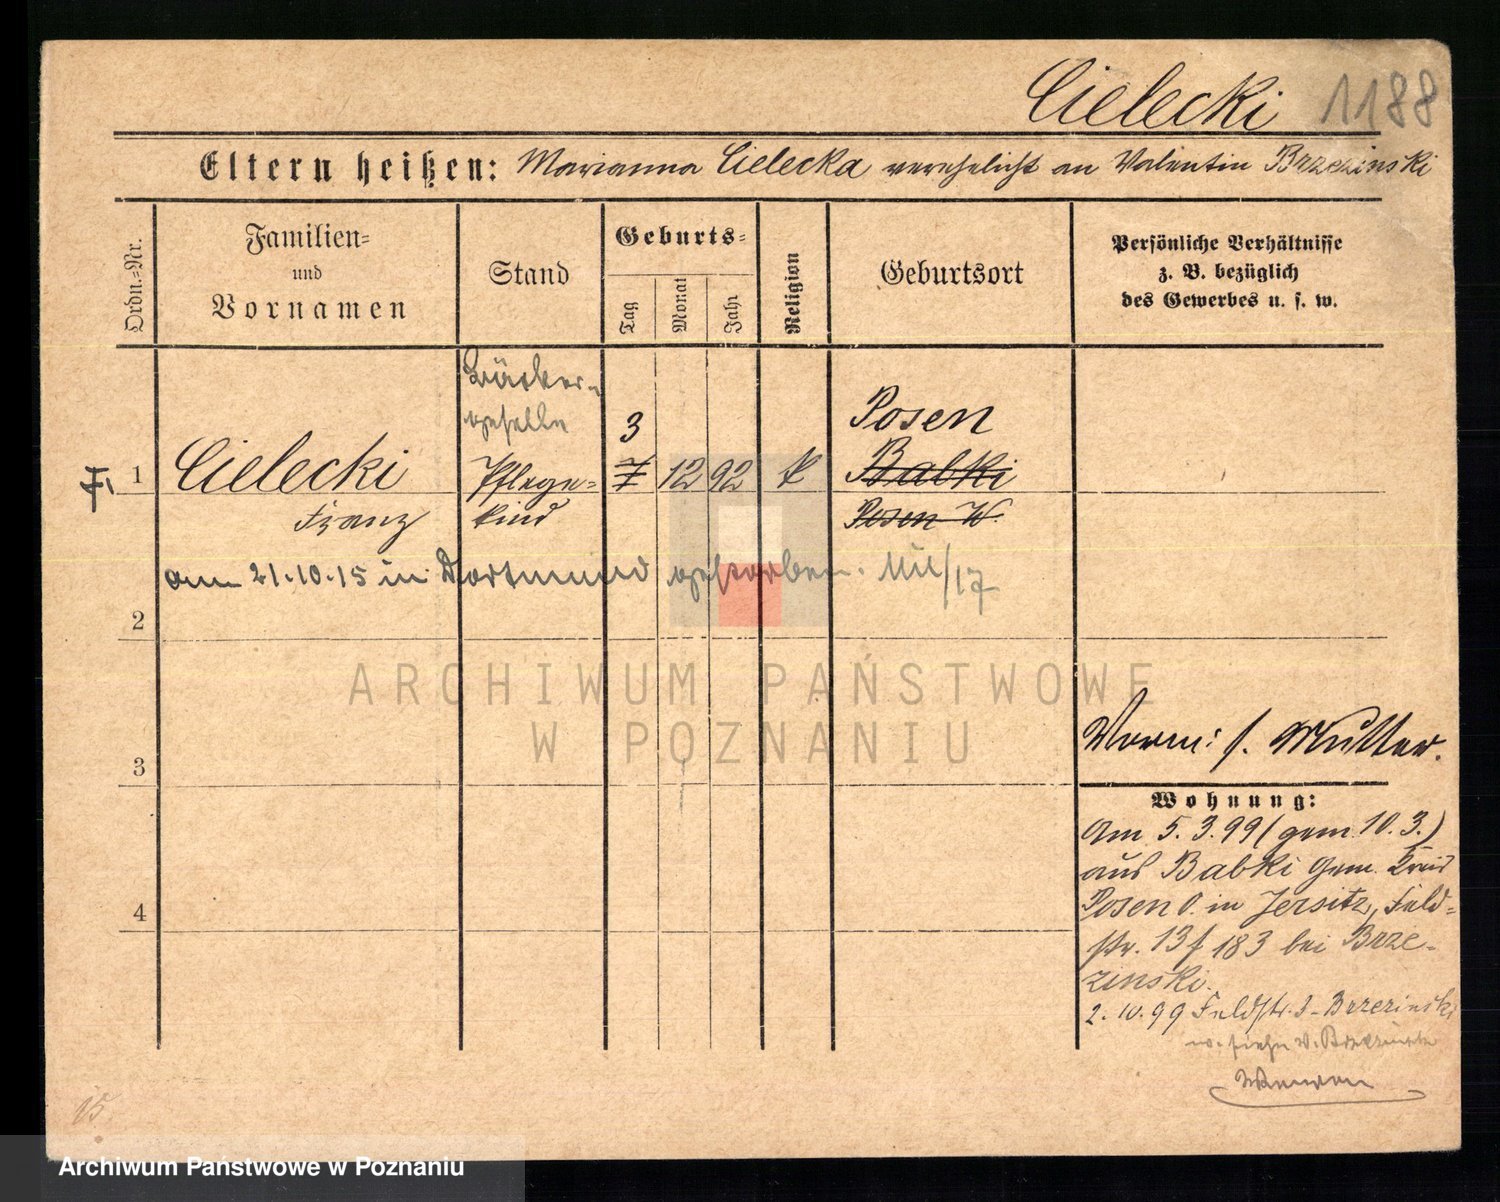 Cielecki 1188
Eltern heißen: Marianna Cielecka verehelicht an Valentin Brzezinski
Ordn.=Nr.
Familien=
und
Vornamen
Stand
Geburts=
Tag
Monat
Jahr
Religion
Geburtsort
Persönliche Verhältnisse
z. B. bezüglich
des Gewerbes u. s. w.
Bäcker-
geselle
Posen
3
1 Cielecki Pflege= 7 12 92 k Babki
Franz kind Posen W.
am 21.10.15 in Dortmund gestorben.
2
3
4
Vorm: s. Mutter.
Wohnung:
Am 5.3.99 (gem. 10.3.)
aus Babki Gem. Kreis
Posen O. in Jersitz, Feld=
str. 13 f 183 bei Brze-
zinski.
2.10.99 Feldstr. 3 - Brzezinski
w. siehe V. Brzezinski
15.
ARCHIWUM PAŃSTWOWE
W POZNANIU
Archiwum Państwowe w Poznaniu